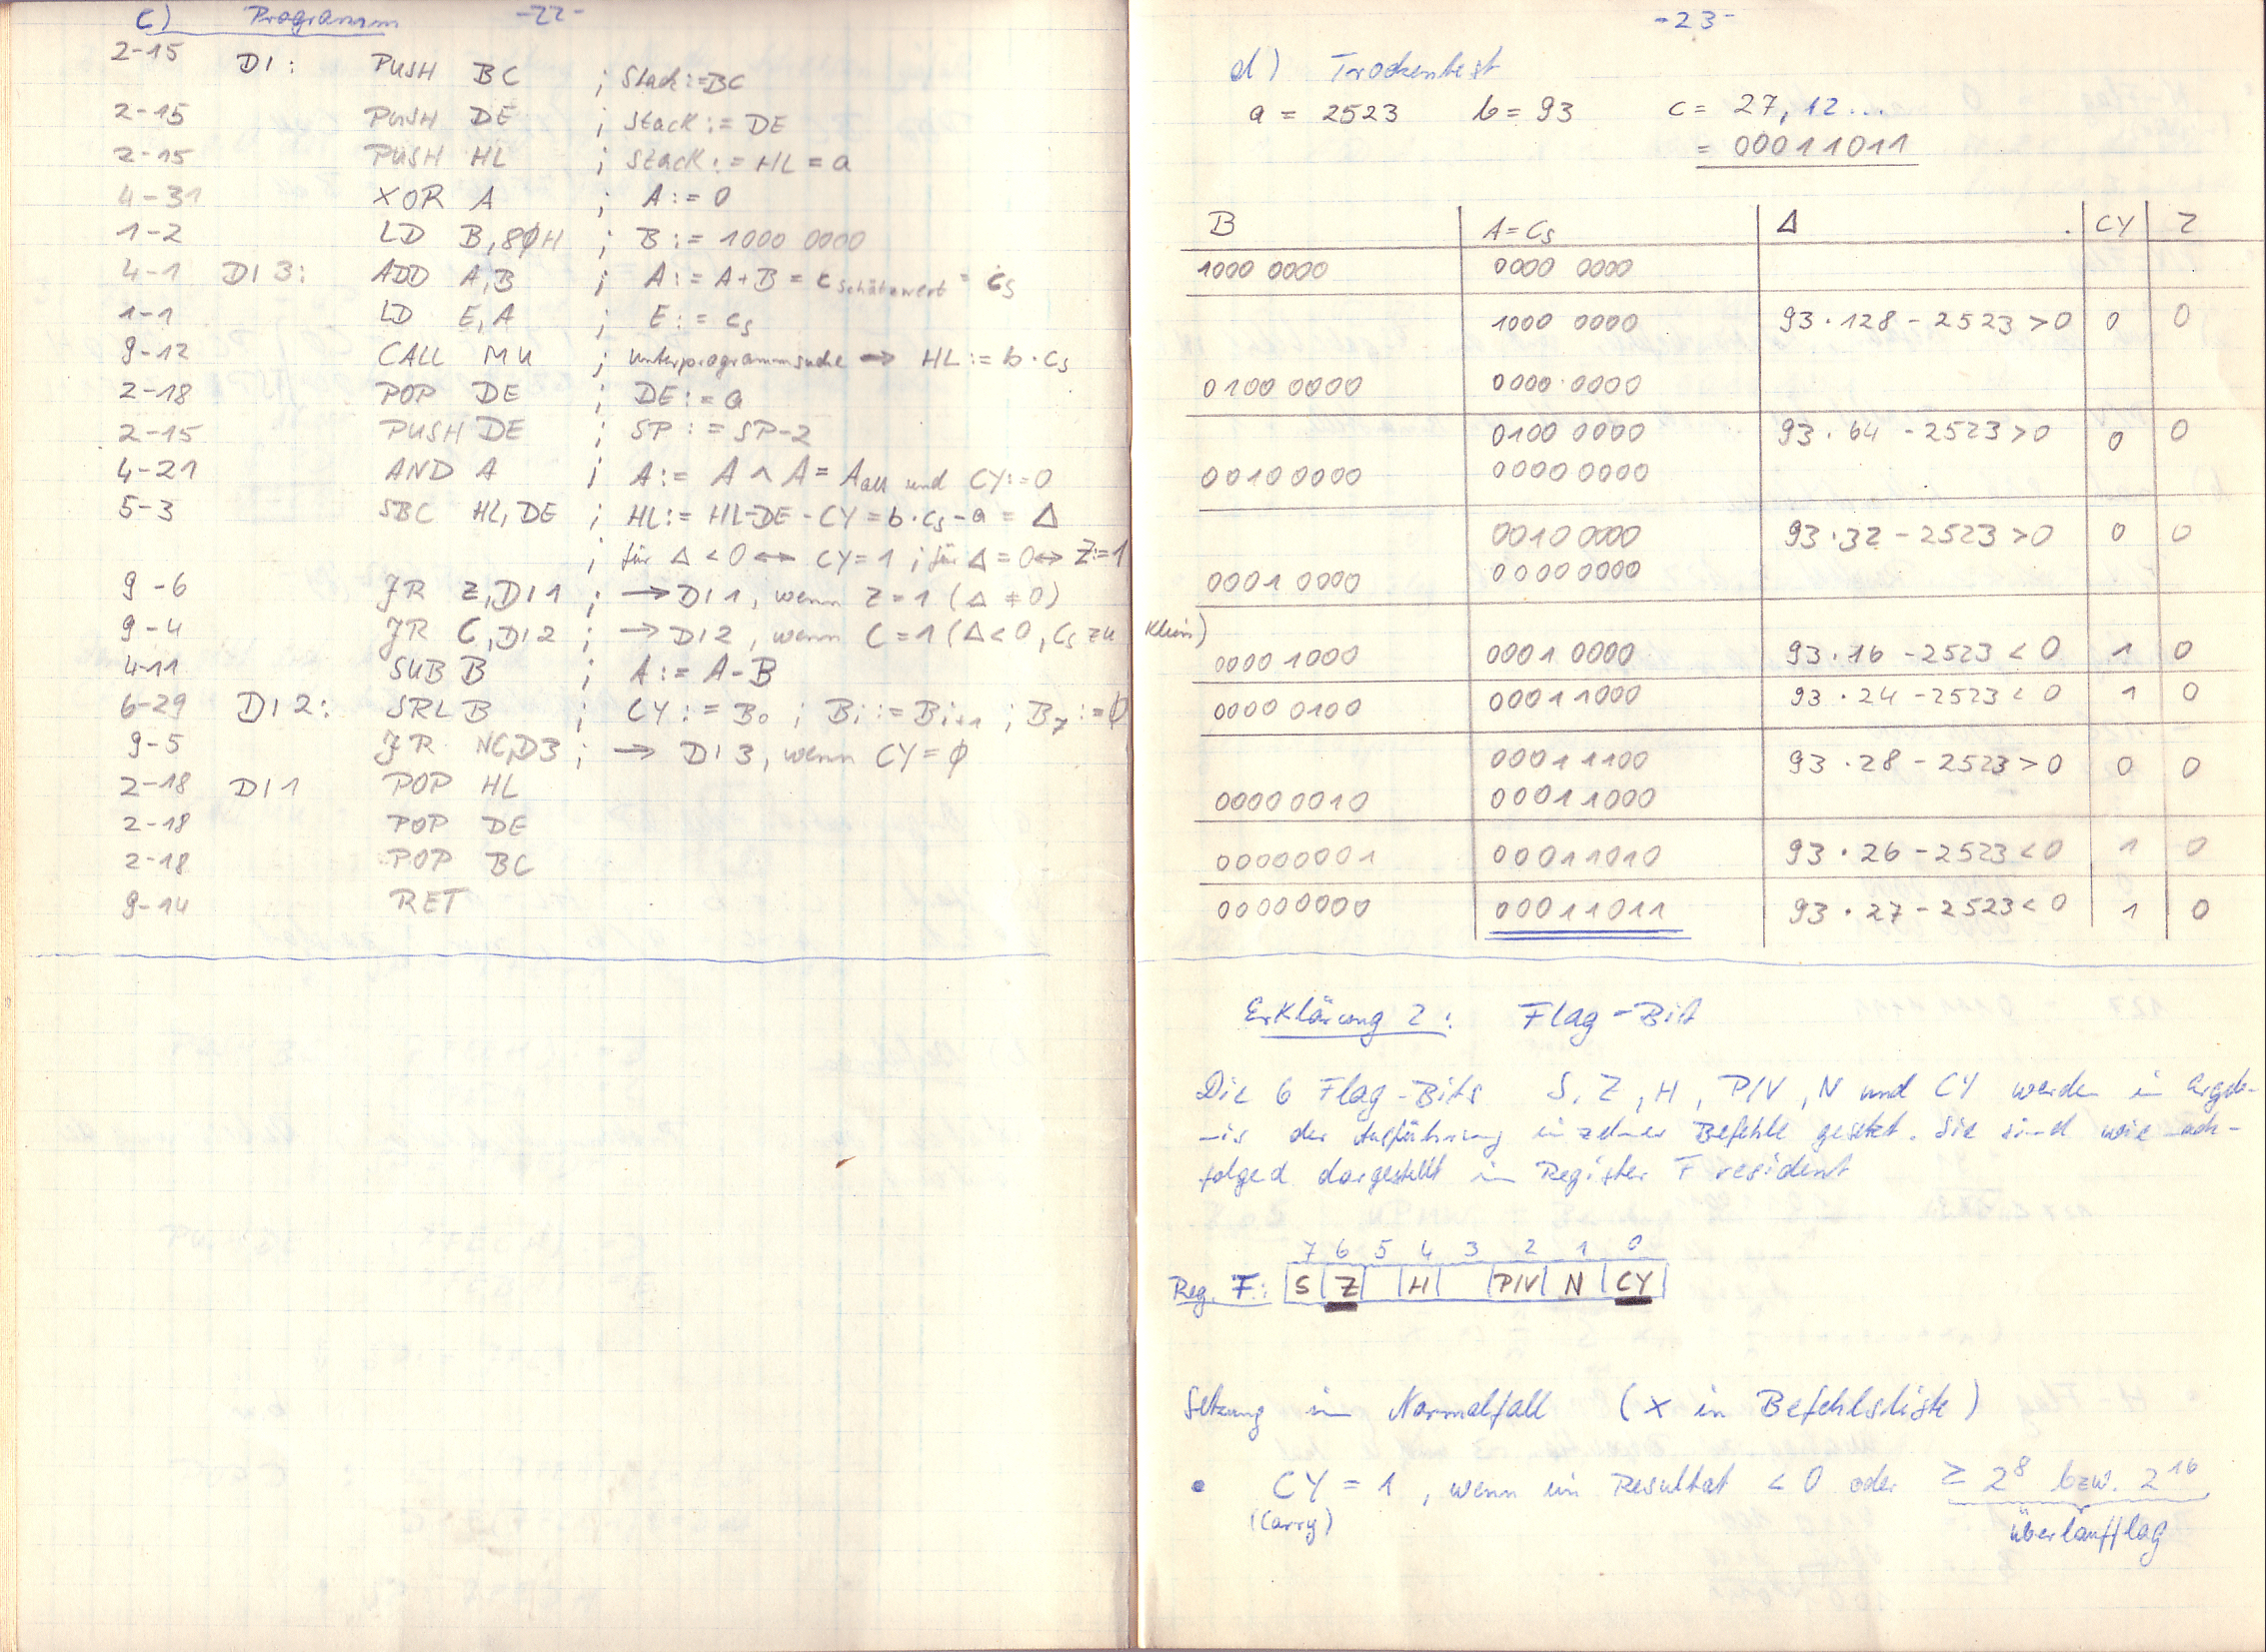 -22-
c) Programm
2-15 DI: PUSH BC ; Stack:=BC
2-15 PUSH DE ; Stack:=DE
2-15 PUSH HL ; Stack:=HL=a
4-31 XOR A ; A:=0
1-2 LD B,80H ; B:=1000 0000
4-1 DI3: ADD A,B ; A:=A+B=c Schätzwert = cs
1-1 LD E,A ; E:=cs
9-12 CALL MU ; Unterprogrammsuche → HL:=b·cs
2-18 POP DE ; DE:=a
2-15 PUSH DE ; SP:=SP-2
4-21 AND A ; A:=A∧A=Aalt und CY:=0
5-3 SBC HL,DE ; HL:=HL-DE-CY=b·cs-a=Δ
; für Δ<0 ↔ CY=1 ; für Δ=0 ↔ Z:=1
9-6 JR Z,DI1 ; → DI1, wenn Z=1 (Δ≠0)
9-4 JR C,DI2 ; → DI2, wenn C=1 (Δ<0, cs zu klein)
4-11 SUB B ; A:=A-B
6-29 DI2: SRL B ; CY:=B0 ; Bi:=Bi+1 ; B7:=0
9-5 JR NC,D3 ; → DI3, wenn CY=0
2-18 DI1 POP HL
2-18 POP DE
2-18 POP BC
9-14 RET
-23-
d) Trockentest
a = 2523 b = 93 c = 27,12...
= 00011011
B A=Cs Δ CY Z
1000 0000 0000 0000
1000 0000 93·128-2523>0 0 0
0100 0000 0000 0000
0100 0000 93·64-2523>0 0 0
0010 0000 0000 0000
0010 0000 93·32-2523>0 0 0
0001 0000 0000 0000
0000 1000 0001 0000 93·16-2523<0 1 0
0000 0100 00011000 93·24-2523<0 1 0
00011100 93·28-2523>0 0 0
00000010 00011000
00000001 00011010 93·26-2523<0 1 0
00000000 00011011 93·27-2523<0 1 0
Erklärung 2: Flag-Bit
Die 6 Flag-Bits S, Z, H, P/V, N und CY werden in Ergeb-
nis der Ausführung einzelner Befehle gesetzt. Sie sind wie nach-
folged dargestellt im Register F resident
7 6 5 4 3 2 1 0
Reg. F: S Z H P/V N CY
Setzung im Normalfall (x in Befehlsliste)
• CY = 1, wenn im Resultat < 0 oder ≥ 2^8 bzw. 2^16
(Carry) überlaufflag